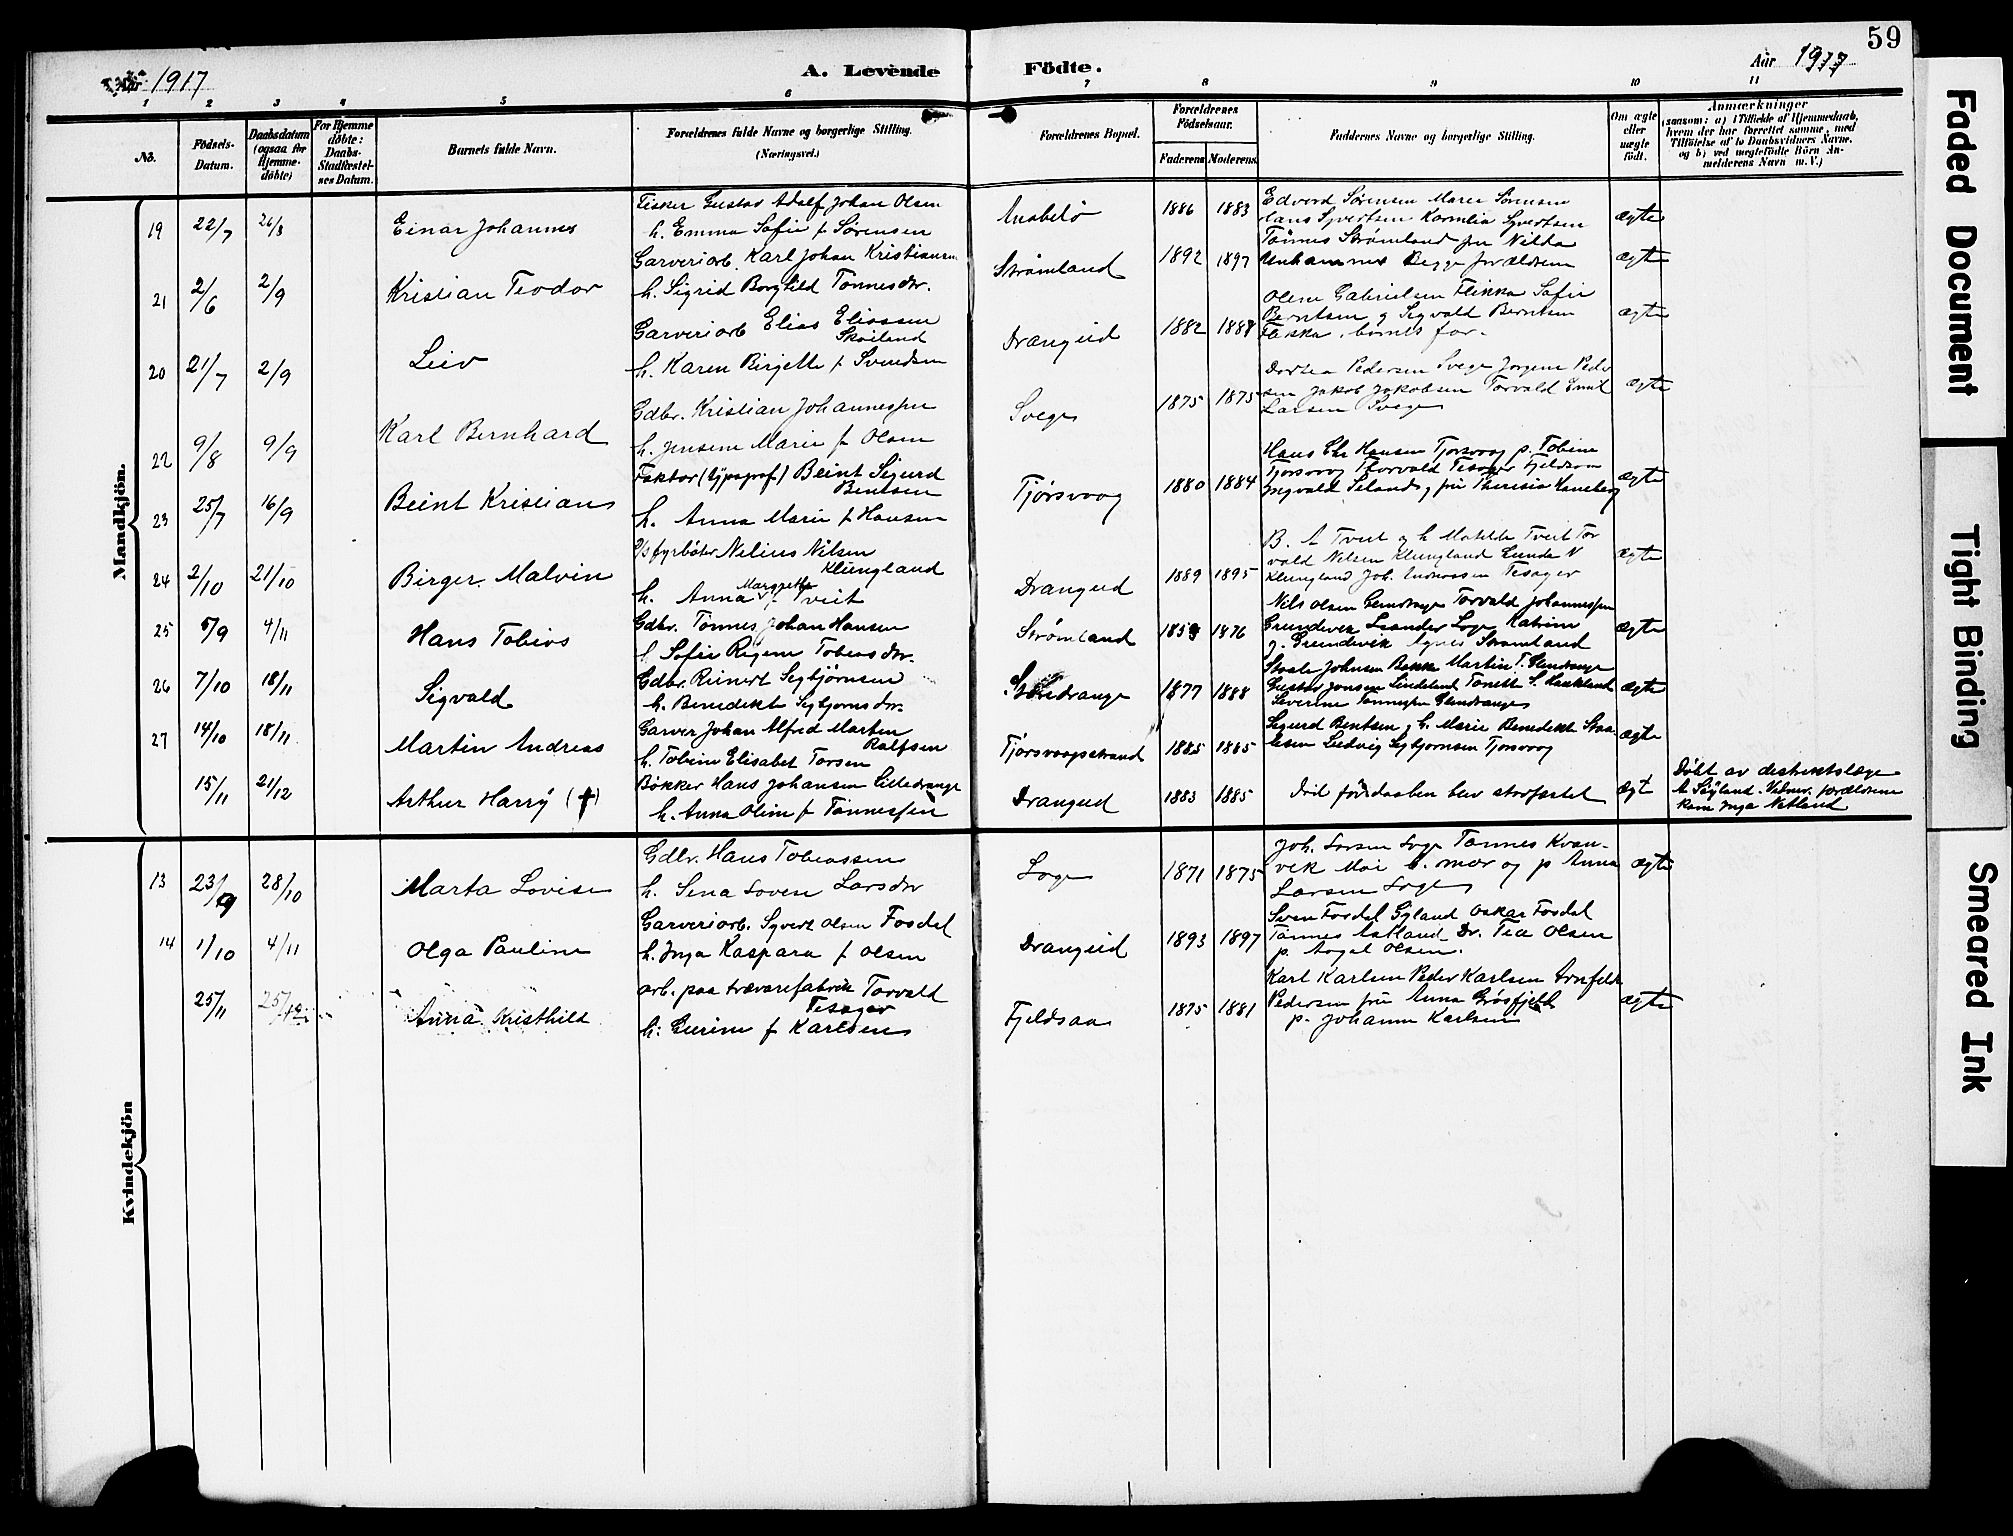 59
Aar 1917
A. Levende Födte.
Aar 1917
1 2 3 4 5 6 7 8 9 10 11
No.
Födsels-Datum.
Daabsdatum (ogsaa for Hjemme-döbte)
For Hjemme döbte: Daabs-Stadfæstel-ses Datum.
Barnets fulde Navn.
Forældrenes fulde Navne og borgerlige Stilling. (Næringsvei.)
Forældrenes Bopæl.
Forældrenes Födselsaar.
Faderens Moderens
Faddernes Navne og borgerlige Stilling.
Om ægte eller uægte födt.
Anmærkninger
(saasom: a) i Tilfælde af Hjemmedaab, hvem der har forrettet samme, med Tilföielse af to Daabsvidners Navne, og b) ved uægtefödte Börn An-melderens Navn m. V.)
Mandkjön.
19 22/7 26/8 Einar Johannes
Fisker Gustav Adolf Johan Olsen
h. Emma Sofie f Sørensen
Anabelø 1886 1883
Edvard Sørensen Marie Sørensen
Hans Syvertsen Kornelia Syvertsen
ægte
21 2/6 2/9 Kristian Teodor
Garveriarb. Karl Johan Kristiansen
h. Sigrid Borghild Tønnesdtr.
Strømland 1892 1897
Tønnes Strømland fru Nilda
Unhammer Begge forældrene
ægte
20 21/7 2/9 Leiv
Garveriarb Elias Eliassen
Skoiland
h. Karen Birgette f Svendsen
Drangeid 1882 1888
Olene Gabrielsen Flikka Sofie
Berntsen g Sigvald Berntsen
Flikka, barnets far.
ægte
22 9/8 9/9 Karl Bernhard
Gdbr. Kristian Johannessen
h. Jensine Marie f Olsen
Svege 1875 1875
Dortea Pedersen Svege Jørgine Peder
sen Jakob Jakobsen Torvald Emil
Larsen Svege
ægte
23 25/7 16/9 Beint Kristian
Faktor (typograf) Beint Sigurd
Bentsen
h. Anna Marie f Hansen
Tjørsvaag 1880 1884
Hans Chr Hansen Tjorsvaag p. Tobine
Tjorsvaag Thorvald Tesager Fjeldsaa
Ingvald Seland g fru Theresia Haneberg
ægte
24 2/10 21/10 Birger Malvin
D/S fyrbøter Nelius Nilsen
Klungland
h. Anna Margrethe f. Tveit
Drangeid 1889 1895
B. A Tveit og h Matilde Tveit Tor
vald Nilsen Klungland Lunda N
Klungland Joh. Andreassen Tesager
ægte
25 5/9 4/11 Hans Tobias
Gdbr. Tønnes Johan Hansen
h Sofie Regine Tobiasdtr.
Strømland 1859 1876
Nils Olsen Glendrange Torvald Johannessen
Grundevik Leander Loge Katrine
g. Grundevik Agnes Strømland
ægte
26 7/10 18/11 Sigvald
Gdbr. Reinert Segbjørnsen
h. Benedikte Segbjørnsdtr.
Glendrange 1877 1888
Staale Johnsen Bakke Martin T. Glendrange
Gustav Jonsen Lindeland Tonette S. Haukland
Severine Tønnessen Glendrange
ægte
27 14/10 18/11 Martin Andreas
Garver Johan Alfred Marten
Ralfsen
h. Tobine Elisabet Torsen
Tjørsvaagstrand 1885 1885
Sigurd Bentsen g h. Marie Benedikte Staa-
lesen Ludvig Segbjørnsen Tjorsvaag
ægte
15/11 21/12 Arthur Harry (†)
Bøkker Hans Johansen Lilledrange
h. Anna Oline f Tønnessen
Drangeid 1883 1885
Død før daaben blev stadfæstet
ægt
Døbt av distriktslæge
A Søyland. Vidner. forældrene
Inga Natland
Kvindekjön
13 23/9 28/10 Marta Lovise
Gdbr. Hans Tobiassen
h. Sena Loven Larsdtr
Loge 1871 1875
Joh. Larsen Loge Tønnes Kvan-
vik Moi b. mor og p Anna
Larsen Loge
ægte
14 1/10 4/11 Olga Pauline
Garveriarb. Syvert Olsen Fosdal
h. Inga Kaspara f Olsen
Drangeid 1893 1897
Sven Fosdal Gyland Oskar Fosdal
Tønnes Aatland Dr. Tea Olsen
p. Aagot Olsen.
25/11 25/12 Anna Kristhild
arb. paa trævarefabrik Torvald
Tesager
h: Gurine f Karlsen
Fjeldsaa 1875 1881
Karl Karlsen Peder Karlsen Arnfeldt
Pedersen fru Anna Grøsfjeld
p. Johanne Karlsen
ægte
Faded Document
Tight Binding
Smeared Ink